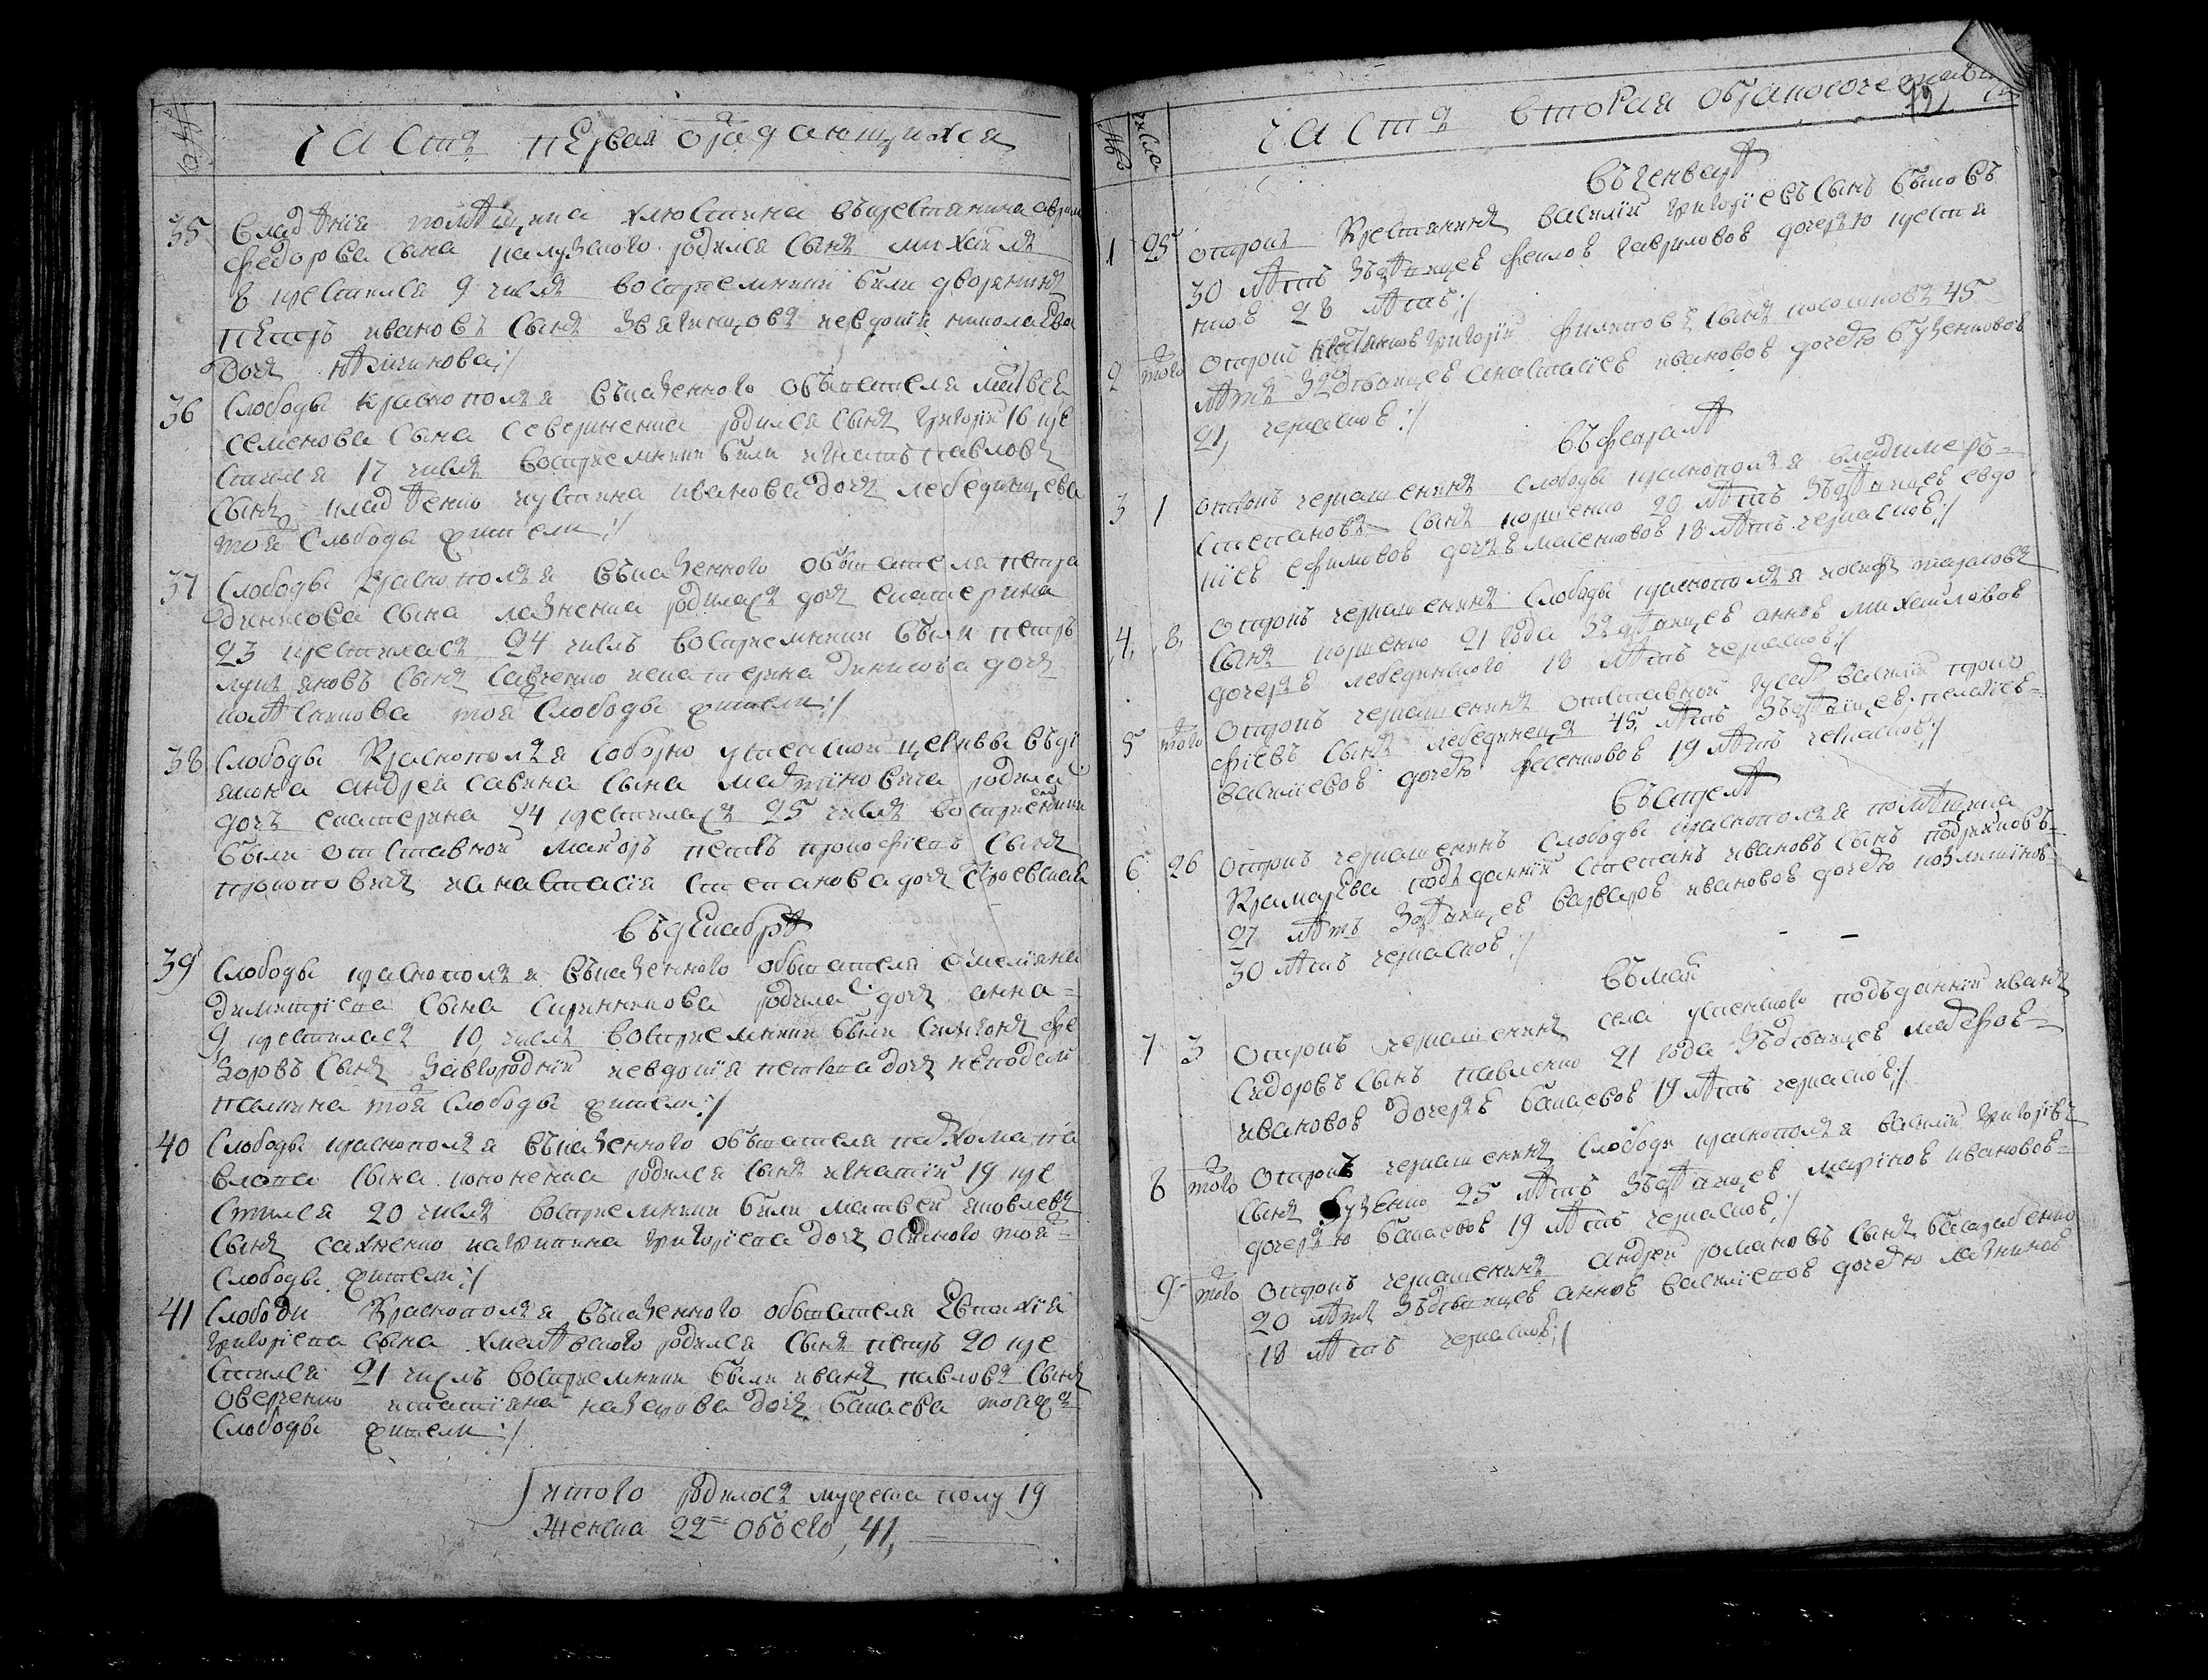 часть первая ораждающихся
35 владѣнія помѣщика хлюстина въ крестянина
федорова сына родился сынъ михаилъ
8 крестился 9 числа восприемники были дворянинъ
петръ ивановъ сынъ звягинцовъ иевдокія николаева
дочь
36 Слободы краснополья въказенного обывателя матвея
семенова сына севериненка родился сынъ григорій 16 кре
стился 17 числа восприемники были игнатъ павловъ
сынъ иустина иванова дочь лебединцева
тояжъ слободы жители :/
37 Слободы краснополья въказенного обывателя петра
динисова сына лазненка родилась дочь екатерина
23 крестилась 24 числъ восприемники были петръ
лукяновъ сынъ савченко иекатерина динисова дочь
тояжъ слободы жители :/
38 Слободы краснополья соборно успенской церквы въ ді
якона андрея савина сына мартиновича родилас
дочъ екатерина 24 крестилась 25 числа восприемники
были отставной маиоръ петръ прокофіевъ сынъ
прокоповичъ ианастасія степанова дочъ
въ декабрѣ
39 Слободы краснополья въказенного обывателя емеляна
димитріева сына скринникова родилас дочь анна =
9 крестилась 10 числа восприемники были симионъ фе
доровъ сынъ завгородній иевдокія петрова дочь
тояжъ слободы жители :/
40 Слободы краснополья въказенного обывателя пахома па
влова сына кононенка родился сынъ игнатій 19 кре
стился 20 числа восприемники были матвей яковлевъ
сынъ сахненко иагрипина григоріева дочь тояжъ
слободы жители :/
41 Слободи краснополья въказенного обывателя евтихія
григоріева сына родился сынъ петръ 20 кре
стился 21 числъ восприемники были иванъ павловъ сынъ
оверченко итатіяна назарова дочъ бакаева тояжъ
слободы жители :/
итого родилось мужеска полу 19
женска 22 обоего 41,
№ числа часть вторая обракосочетав
въ генварѣ
1 25 отрокъ крестянинъ василій григоріевъ сынъ
30 лѣтъ здѣвицею гавриловою дочерью крестя
нкою 28 лѣтъ :/
2 того григорій филиповъ сынъ 45
лѣтъ здѣвицею анастасіею ивановою дочерю буценковою
21, черкаскою :/
въ февралѣ
3 1 отрокъ черкашенинъ слободы краснополья владимеръ =
степановъ сынъ коршенко 20 лѣтъ здѣвицею евдо
кіею ефимовою дочерью 18 лѣтъ черкаскою :/
4, 8, отрокъ черкашенинъ слободы краснополья иосифъ тарасовъ
сынъ коршенко 21 года здѣвицею анною михайловою
дочерью лебединского 18 лѣтъ черкаскою :/
5 того отрокъ черкашенинъ отставной гусаръ василій проко
фіевъ сынъ лебединецъ 45, лѣтъ здѣвицею пелагіею =
василіевою дочерю фесенковою 19 лѣтъ черкаскою :/
въ апрелѣ
6 26 отрокъ черкашенинъ слободы краснополья помѣщика
крамарева подъданній степанъ ивановъ сынъ
27 лѣтъ здѣвицею варварою ивановою дочерю
30 лѣтъ черкаскою :/
въ маіи
7 3 отрокъ черкашенинъ села успенского подъданній иванъ
сидоровъ сынъ павленко 21 года здѣвицею
ивановою дочерью бакаевою 19 лѣтъ черкаскою :/
8 того отрокъ черкашенинъ слободы краснополья василій григорієвъ
сынъ буценко 25 лѣтъ здѣвицею маріною ивановою =
дочерью бакаевою 19 лѣтъ черкаскою :/
9 того отрокъ черкашенинъ андрей романовъ сынъ
20 лѣтъ здѣвицею анною василіевою дочерю
18 лѣтъ черкаскою :/